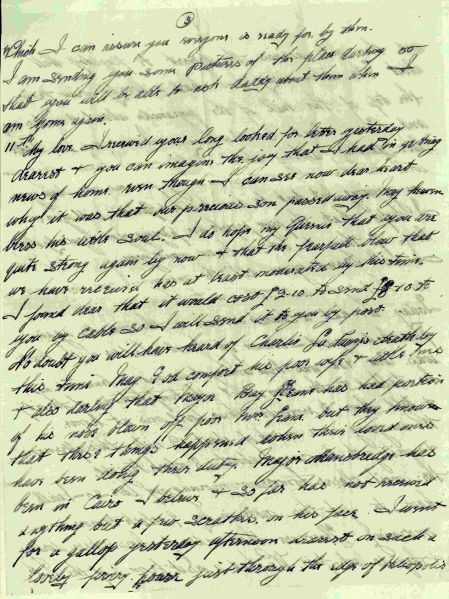 (3)
which I can assure you everyone is ready for by then.
I am sending you some pictures of the place darling so
that you will be able to ask daddy about them when I
am home again.
11th My love. I received your long looked for letter yesterday
dearest & you can imagine the joy that I had in getting
news of home even though I can see now dear heart
why it was that our precious son passed away. May heaven
bless his little soul. I do hope my Queenie that you are
quite strong again by now & that the fearful blow that
we have received has at least moderated by this time.
I found dear that it would cost £2-10 to send £8.10 to
you by cable so I will send it to you by post
No doubt you will have heard of Charlie La death by
this time. May God comfort his poor wife & little
& also darling that Gray has had portion
of his nose blown off poor Mrs but they know
that these things happened when their loved ones
have been doing their duty. Major has
been in Cairo I believe & so far has not received
anything but a few scratches on his face. I went
for a gallop yesterday afternoon dearest on such a
lovely pony horse just through the edge of Heliopolis